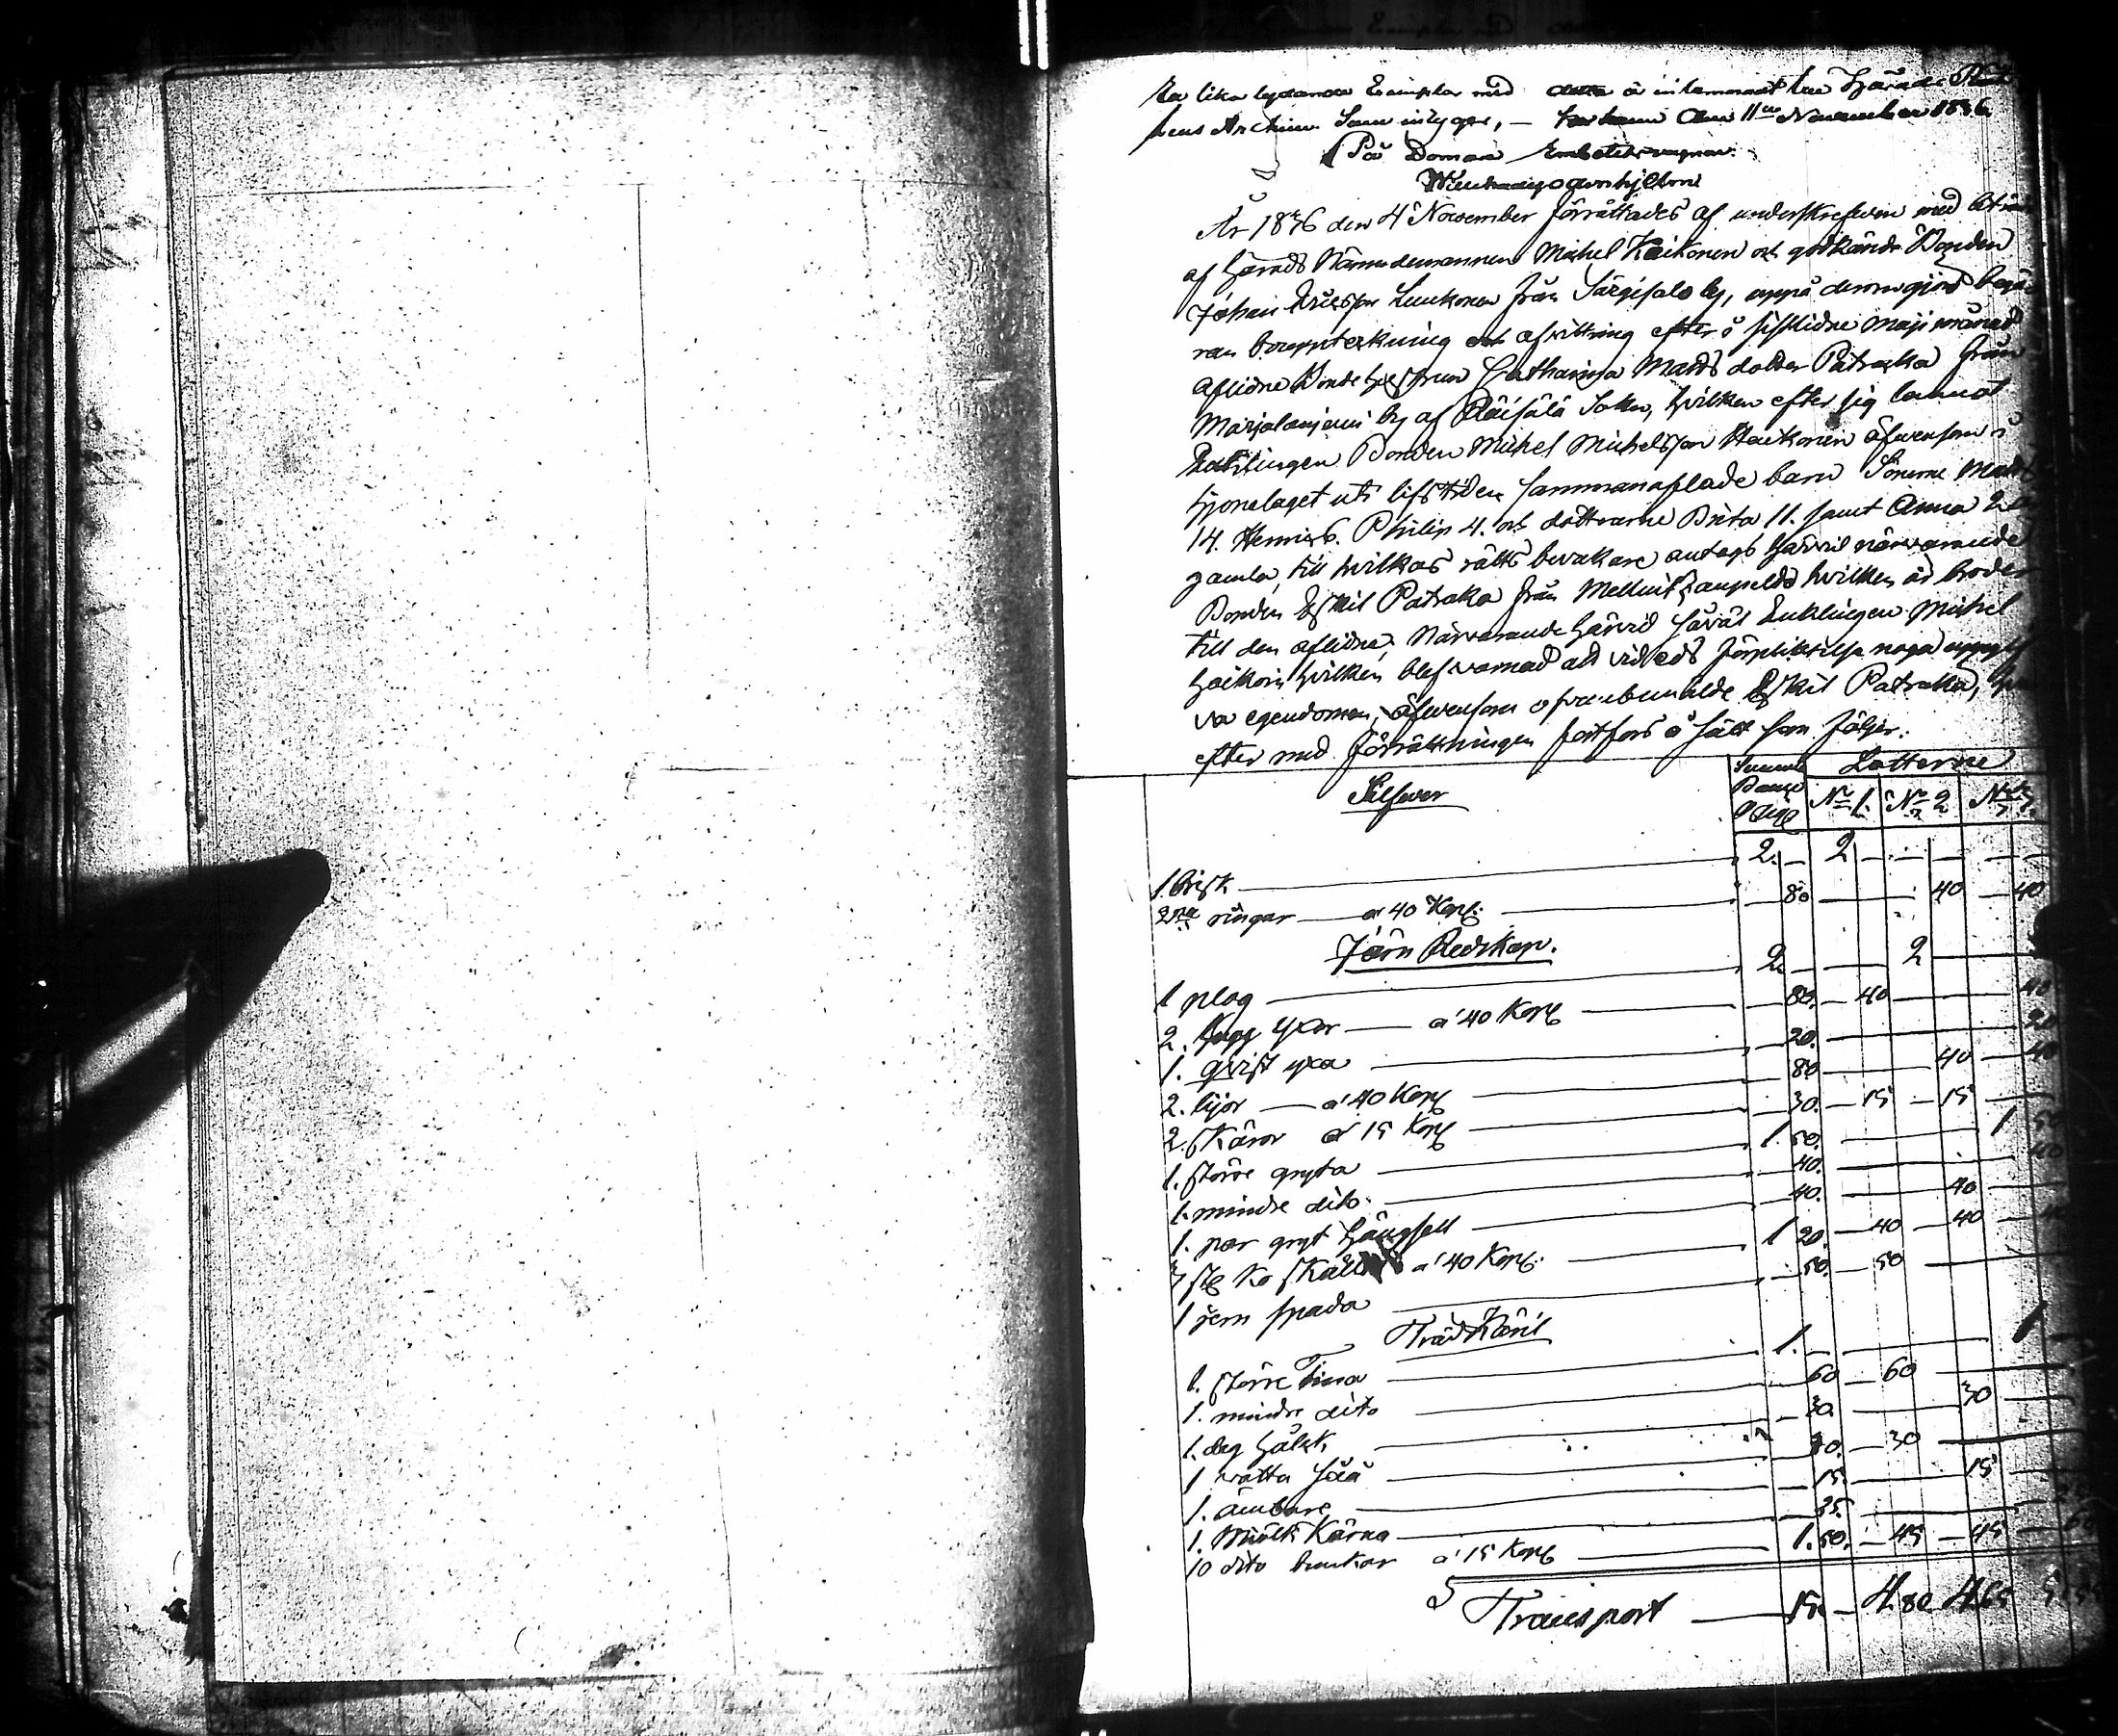 En lika lydande Exemplar med detta är inlemnadt till Härads Rät
tens Archiv. Som intygar, — den 11te November 1836
På Domare Embetets vägnar.
År 1836 den 4 November förrättades af underskrefven med biträde
af Härads Nämndemannen Michel Kaikonen och godkände Bonden
Johan Ericsson Luukonen från Särgisalo by, uppå derom gjord begä-
ran bouppteckning och afvittring efter i sistlidne Maji månad
aflidne Bonde hustrun Catharina Matts dotter Patrakka från
Marjalanjemi by af Räisälä Sokn, hvilken efter sig lemnat
Enklingen Bonden Michel Michelsson Haikonen äfvensom i
hjonelaget uti lifstiden sammanaflade barn Sönerne Matts
14. Henric 6. Philip 4. och döttrarne Brita 11. samt Anna 2 år
gamla, till hvilkas rätts bevakare antogs härvid närvarande
Bonden Eskil Patrakka från hvilken är broder
till den aflidna; Närvarande härvid Enklingen Michel
Haikoin hvilken blef varnad att vid eds förpliktelse noga uppgif
va egendomen, äfvensom ofvanbemälde Eskil Patrakka, hvar
efter med förrättningen fortfors å sätt som följer:
Silfver Summa Banco Lotterne
N:o 1. N:o 2 N:o 3.
1 brisk — 2. — 2 — — — —
2ne ringar — a 40 Kop: — 80 — 40 — 40
Järn Redskap.
1 plog — 2. — 2 —
2. hugg yxor — a 40 Kop — 80. — 40 — 40
1. qvist yxa — 20. — 20
2. lijor — a 40 Kop — 80 — 40 — 40
2. skäror a 15 Kop — 30. — 15 — 15 —
1. större gryta — 1. 50. — 1 50
1. mindre dito — 40. — 40
1. par gryt hängsell — 40. — 40 —
3 st ko skällor a 40 Kop: — 1 20. — 40 — 40 — 40
1 jern spada — 50. — 50 —
Träd Käril
1. större Tina — 1. — 1
1. mindre dito — 60 — 60 —
1. deg hålck — 30 — 30 —
1 vatta såå — 30. — 30 —
1. ämbare — 15 — 15 —
1. Miölk Kärna — 25. — 25
10 dito bunkar a 15 Kop — 1. 50. — 45 — 45 — 60
Transport — 15. — 4. 80 4. 65 5 55